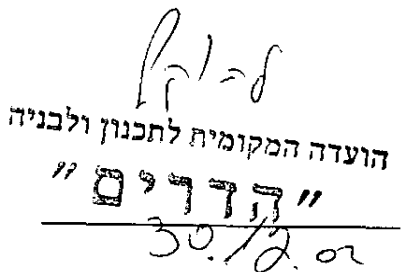 הועדה המקומית לתכנון ולבניה
"הדרים"
30.12.02